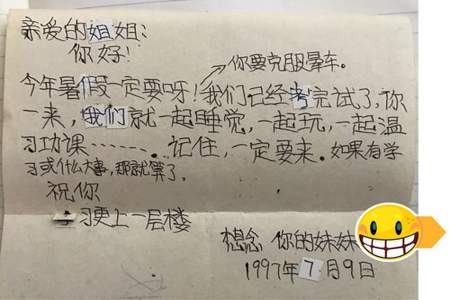 亲爱的姐姐：
你好！
你要克服晕车。
今年暑假一定要呀！我们已经考完试了，你
一来，我们就一起睡觉，一起玩，一起温
习功课………。记住，一定要来。如果有学
习或什么大事，那就算了。
祝你
学习更上一层楼
想念你的妹妹
1997年7月9日